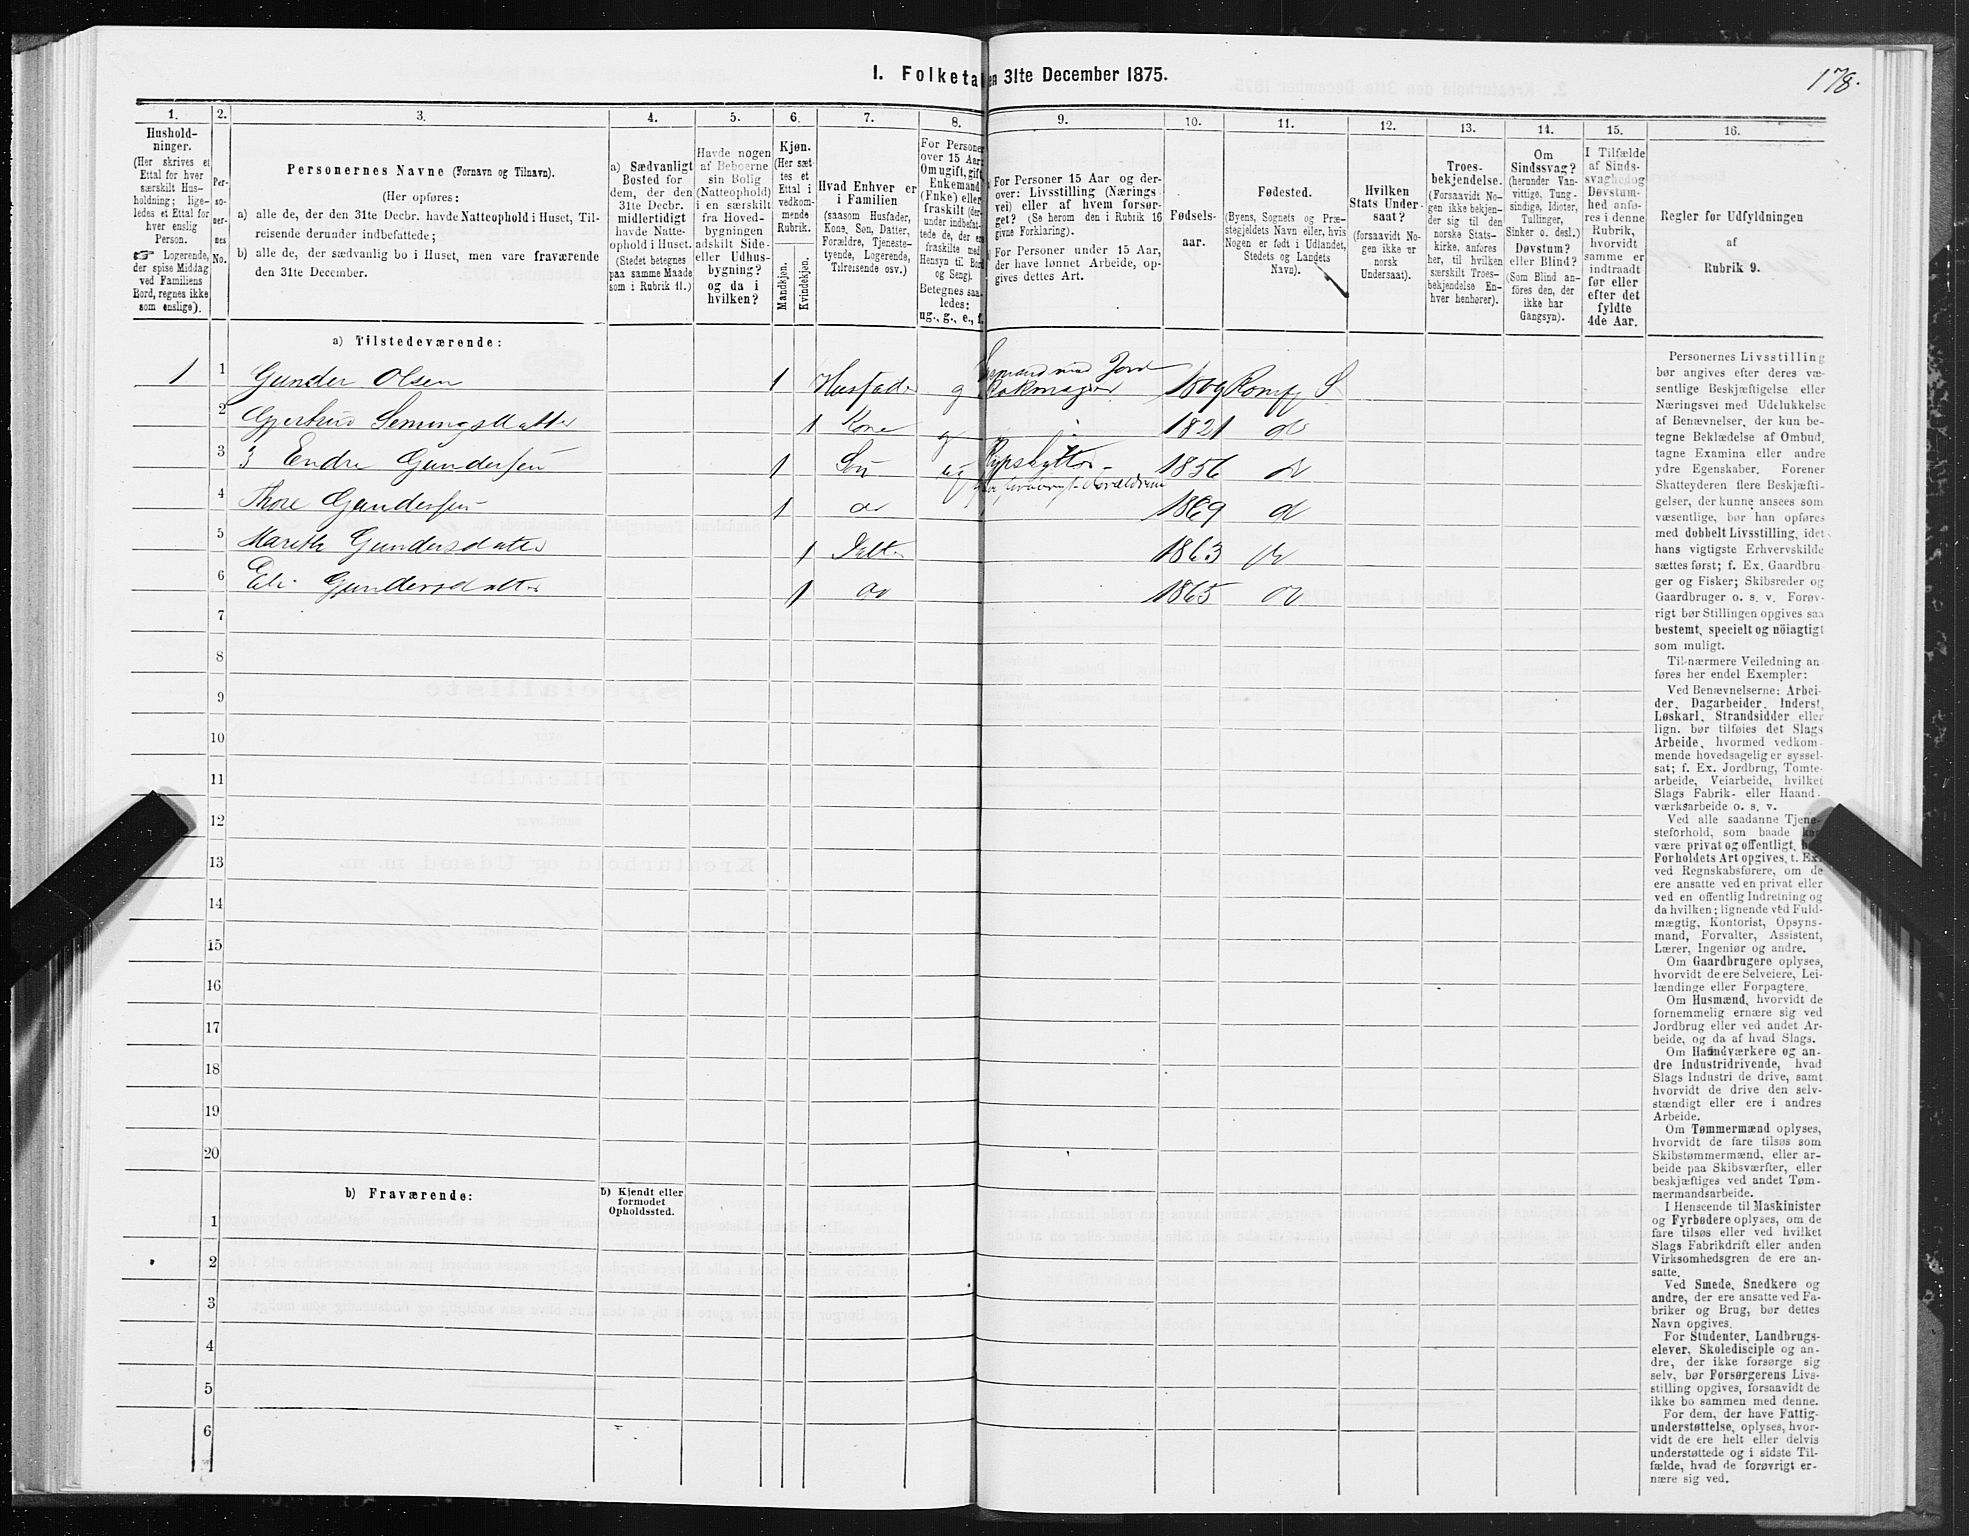 178.
I. Folketal
en 31te December 1875.
1. 2. 3. 4. 5. 6. 7. 8. 9. 10. 11. 12. 13. 14. 15. 16.
Hushold-
ninger.
(Her skrives et
Ettal for hver
særskilt Hus-
holdning; lige-
ledes et Ettal for
hver enslig
Person.
☞ Logerende,
der spise Middag
ved Familiens
Bord, regnes ikke
som enslige).
Per-
so-
ner-
nes
No.
Personernes Navne (Fornavn og Tilnavn).
(Her opføres:
a) alle de, der den 31te Decbr. havde Natteophold i Huset, Til-
reisende derunder indbefattede;
b) alle de, der sædvanlig bo i Huset, men vare fraværende
den 31te December.
a) Sædvanligt
Bosted for
dem, der den
31te Decbr.
midlertidigt
havde Natte-
ophold i Huset.
(Stedet betegnes
paa samme Maade
som i Rubrik 11.)
Havde nogen
af Beboerne
sin Bolig
(Natteophold)
i en særskilt
fra Hoved-
bygningen
adskilt Side-
eller Udhus-
bygning?
og da i
hvilken?
Kjøn.
(Her sæt-
tes et
Ettal i
vedkom-
mende
Rubrik.
Mandkjøn.
Kvindekjøn.
Hvad Enhver er
i Familien
(saasom Husfader,
Kone, Søn, Datter,
Forældre, Tjeneste-
tyende, Logerende,
Tilreisende osv.)
For Personer
over 15 Aar:
Om ugift, gift,
Enkemand
(Enke) eller
fraskilt (der-
under indbefat-
tede de, der ere
fraskilte med
Hensyn til Bord
og Seng).
Betegnes saa-
ledes:
ug., g., e., f.
For Personer 15 Aar og der-
over: Livsstilling (Nærings-
vei) eller af hvem forsør-
get? (Se herom den i Rubrik 16
givne Forklaring).
For Personer under 15 Aar,
der have lønnet Arbeide, op-
gives dettes Art.
Fødsels-
aar.
Fødested.
(Byens, Sognets og Præ-
stegjeldets Navn eller, hvis
Nogen er født i Udlandet,
Stedets og Landets
Navn).
Hvilken
Stats Under-
saat?
(forsaavidt No-
gen ikke er
norsk
Undersaat).
Troes-
bekjendelse.
(Forsaavidt No-
gen ikke bekjen-
der sig til den
norske Stats-
kirke, anføres
her, til hvilken
særskilt Troes-
bekjendelse En-
hver henhører).
Om
Sindssvag?
(herunder Van-
vittige, Tung-
sindige, Idioter,
Tullinger,
Sinker o. desl.)
Døvstum?
eller Blind?
(Som Blind an-
føres den, der
ikke har
Gangsyn).
I Tilfælde
af Sinds-
svaghed og
Døvstum-
hed anfø-
res i denne
Rubrik,
hvorvidt
samme er
indtraadt
før eller
efter det
fyldte
4de Aar.
Regler for Udfyldningen
af
Rubrik 9.
a) Tilstedeværende:
1 1 Gunder Olsen 1 Husfader g Jord 1809 S
2 Semingsdatter 1 Kone g 1821 do
3 Endre Gundersen 1 Søn ug 1856 do
4 Thore Gundersen 1 do 1869 do
5 Marith Gundersdatter 1 Datter 1863 do
6 Eli Gundersdatter 1 do 1865 do
7
8
9
10
11
12
13
14
15
16
17
18
19
20
b) Fraværende:
b) Kjendt eller
formodet
Opholdssted.
1
2
3
4
5
6
Personernes Livsstilling
bør angives efter deres væ-
sentlige Beskjæftigelse eller
Næringsvei med Udelukkelse
af Benævnelser, der kun be-
tegne Beklædelse af Ombud,
tagne Examina eller andre
ydre Egenskaber. Forener
Skatteyderen flere Beskjæfti-
gelser, der kunne ansees som
væsentlige, bør han opføres
med dobbelt Livsstilling, idet
hans vigtigste Erhvervskilde
sættes først; f. Ex. Gaardbru-
ger og Fisker; Skibsreder og
Gaardbruger o. s. v. Forøv-
rigt bør Stillingen opgives saa
bestemt, specielt og nöiagtigt
som muligt.
Til nærmere Veiledning an-
føres her endel Exempler:
Ved Benævnelserne: Arbei-
der, Dagarbeider, Inderst,
Løskarl, Strandsidder eller
lign. bør tilføies det Slags
Arbeide, hvormed vedkom-
mende hovedsagelig er syssel-
sat; f. Ex. Jordbrug, Tomte-
arbeide, Veiarbeide, hvilket
Slags Fabrik- eller Haand-
værksarbeide o. s. v.
Ved alle saadanne Tjene-
steforhold, som baade kan
være privat og offentligt, bør
Forholdets Art opgives, t. Ex.
ved Regnskabsførere, om de
ere ansatte ved en privat eller
ved en offentlig Indretning og
da hvilken; lignende ved Fuld-
mægtig, Kontorist, Opsyns-
mand, Forvalter, Assistent,
Lærer, Ingeniør og andre.
Om Gaardbrugere oplyses,
hvorvidt de ere Selveiere, Lei-
lændinge eller Forpagtere.
Om Husmænd, hvorvidt de
fornemmelig ernære sig ved
Jordbrug eller ved andet Ar-
beide, og da af hvad Slags.
Om Haandværkere og an-
dre Industridrivende, hvad
Slags Industri de drive, samt
hvorvidt de drive den selv-
stændigt eller ere i andres
Arbeide.
Om Tømmermænd oplyses,
hvorvidt de fare tilsøs som
Skibstømmermænd, eller ar-
beide paa Skibsværfter, eller
beskjæftiges ved andet Tøm-
mermandsarbeide.
I Henseende til Maskinister
og Fyrbødere oplyses, om de
fare tilsøs eller ved hvilket
Slags Fabrikdrift eller anden
Virksomhedsgren de ere an-
satte.
Ved Smede, Snedkere og
andre, der ere ansatte ved Fa-
briker og Brug, bør dettes
Navn opgives.
For Studenter, Landbrugs-
elever, Skoledisciple og an-
dre, der ikke forsørge sig
selv, bør Forsørgerens Livs-
stilling opgives, forsaavidt de
ikke bo sammen med denne.
For dem, der have Fattig-
understøttelse, oplyses, hvor-
vidt de ere helt eller delvis
understøttede og i sidste Til-
fælde, hvad de forøvrigt er-
nære sig ved.